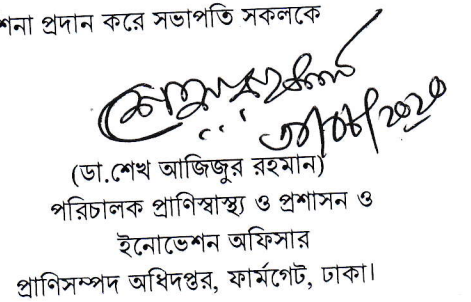 শনা প্রদান করে সভাপতি সকলকে
২০২০
(ডা.শেখ আজিজুর রহমান)
পরিচালক প্রাণিস্বাস্থ্য ও প্রশাসন ও
ইনোভেশন অফিসার
প্রাণিসম্পদ অধিদপ্তর, ফার্মগেট, ঢাকা।